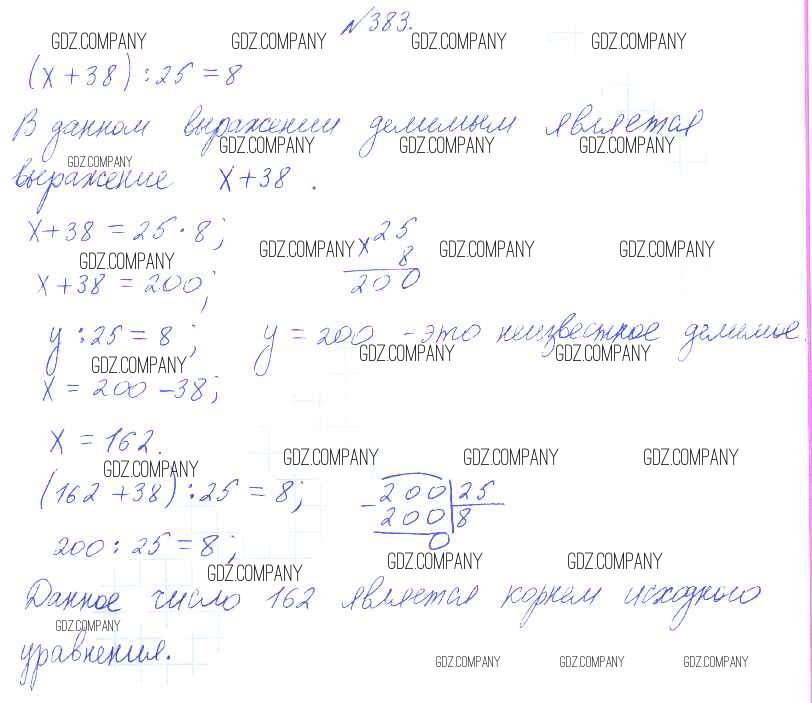 №383.
GDZ.COMPANY GDZ.COMPANY GDZ.COMPANY GDZ.COMPANY
(x+38):25=8
В данном выражении делимым является
GDZ.COMPANY GDZ.COMPANY GDZ.COMPANY GDZ.COMPANY
выражение x+38.
x+38=25·8; x 25
8
GDZ.COMPANY GDZ.COMPANY GDZ.COMPANY GDZ.COMPANY
x+38=200; 200
y:25=8; y=200 - это неизвестное делимое.
GDZ.COMPANY GDZ.COMPANY GDZ.COMPANY
x=200-38;
x=162.
GDZ.COMPANY GDZ.COMPANY GDZ.COMPANY GDZ.COMPANY
(162+38):25=8; -200|25
200|8
200:25=8; 0
GDZ.COMPANY GDZ.COMPANY GDZ.COMPANY
Данное число 162 является корнем исходного
GDZ.COMPANY
уравнения.
GDZ.COMPANY GDZ.COMPANY GDZ.COMPANY